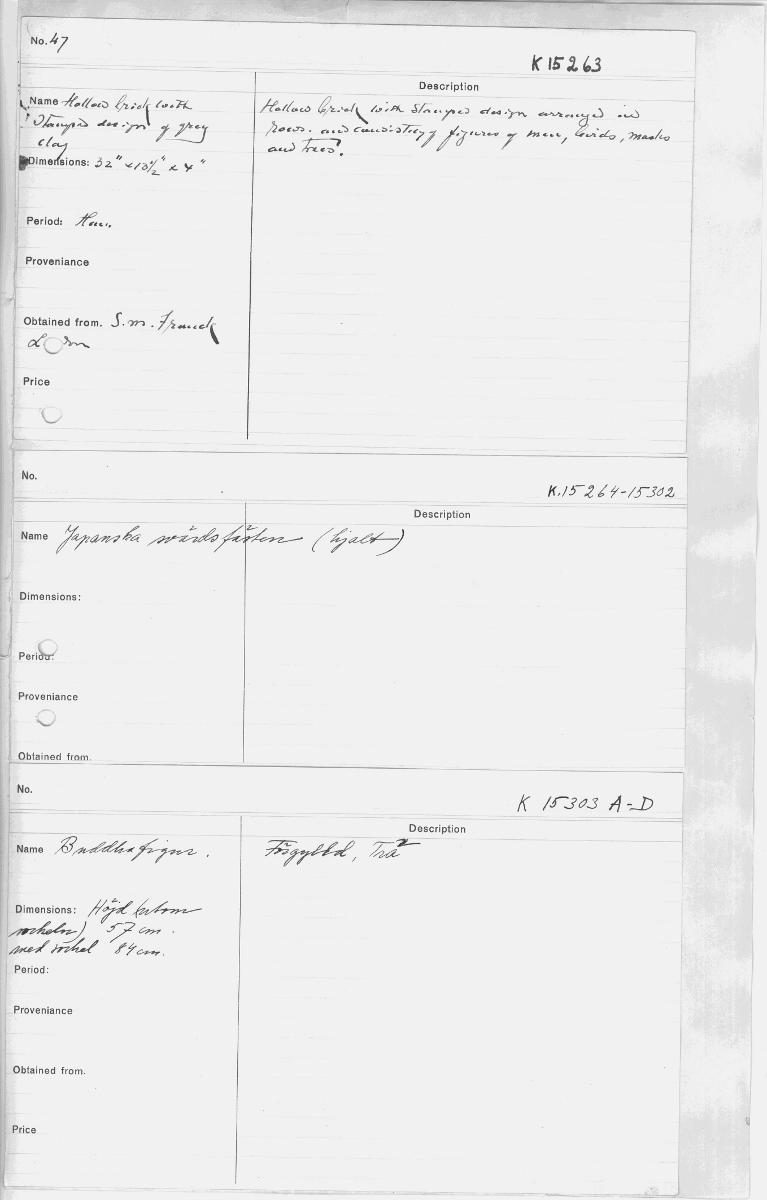 No. 47
K 15263
Description
Name Hollow brick with
stamped design of grey
clay
Dimensions: 32" x 13½" x 4"
Hollow brick with stamped design arranged in
rows. and consisting of figures of men, birds, masks
and trees.
Period: Han.
Proveniance
Obtained from. S. M. Franck
Price
No.
K.15264-15302
Description
Name Japanska svärdsfästen (hjalt)
Dimensions:
Period:
Proveniance
Obtained from.
No.
K 15303 A-D
Description
Name Buddhafigur.
Förgylld, Trä
Dimensions: Höjd (utom
sockeln) 57 cm.
med sockel 84 cm.
Period:
Proveniance
Obtained from.
Price